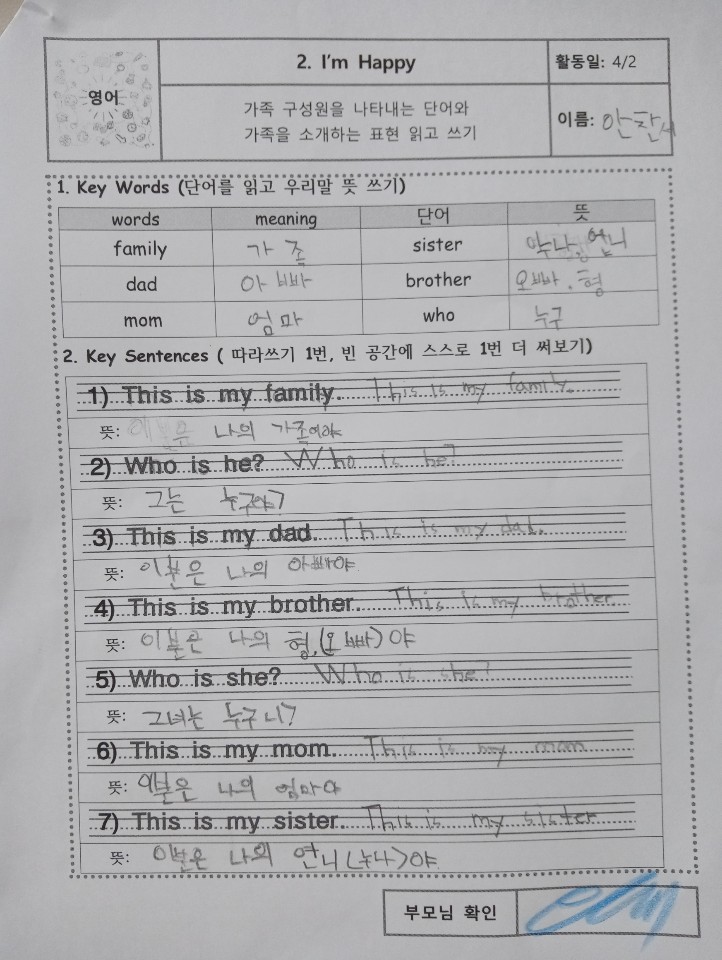 영어
2. I'm Happy
활동일: 4/2
가족 구성원을 나타내는 단어와
가족을 소개하는 표현 읽고 쓰기
이름: 안찬서
1. Key Words (단어를 읽고 우리말 뜻 쓰기)
words meaning 단어 뜻
family 가족 sister 누나, 언니
dad 아빠 brother 오빠, 형
mom 엄마 who 누구
2. Key Sentences ( 따라쓰기 1번, 빈 공간에 스스로 1번 더 써보기)
1) This is my family. This is my family.
뜻: 이분은 나의 가족이야
2) Who is he? Who is he?
뜻: 그는 누구야?
3) This is my dad. This is my dad.
뜻: 이분은 나의 아빠야
4) This is my brother. This is my brother.
뜻: 이분은 나의 형,(오빠)야
5) Who is she? Who is she?
뜻: 그녀는 누구니?
6) This is my mom. This is my mom
뜻: 이분은 나의 엄마야
7) This is my sister. This is my sister
뜻: 이분은 나의 언니(누나)야
부모님 확인